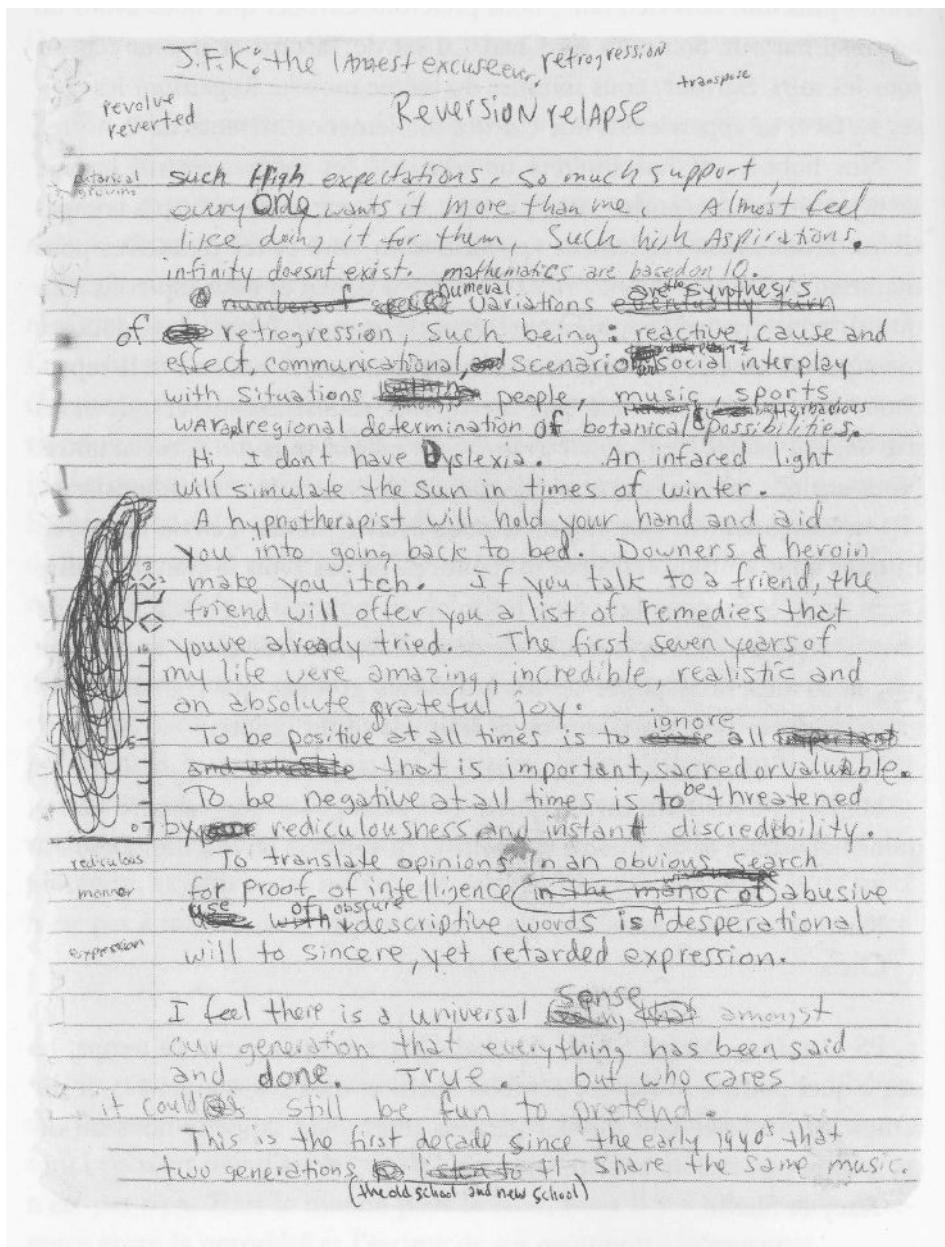 J.F.K: the lamest excuse ever, retrogression
transpose
revolve
reverted
Reversion relapse
botanical
such High expectations, so much support,
everyone wants it more than me. Almost feel
like doing it for them, Such high Aspirations.
infinity doesnt exist. mathematics are based on 10.
numbers of numeral variations are the synthesis
of retrogression, Such being: reactive cause and
effect, communicational, and Scenario social interplay
with situations amongst people, music, sports,
Herbavious
WAR and regional determination of botanical possibilities.
Hi, I dont have Dyslexia. An infared light
will simulate the sun in times of winter.
A hypnotherapist will hold your hand and aid
you into going back to bed. Downers & heroin
make you itch. If you talk to a friend, the
friend will offer you a list of remedies that
youve already tried. The first seven years of
my life were amazing, incredible, realistic and
an absolute grateful joy.
To be positive at all times is to ignore all important
and valuable that is important, sacred or valuable.
To be negative at all times is to be threatened
by rediculousness and instant discredibility.
rediculous
To translate opinions in an obvious search
manner
for proof of intelligence in the manor of abusive
use of obscure descriptive words is A desperational
expression
will to sincere, yet retarded expression.
I feel there is a universal sense amongst
our generation that everything has been said
and done. True. but who cares
it could still be fun to pretend.
This is the first decade since the early 1940s that
two generations listen to share the same music.
(the old school and new school)
10
5
0